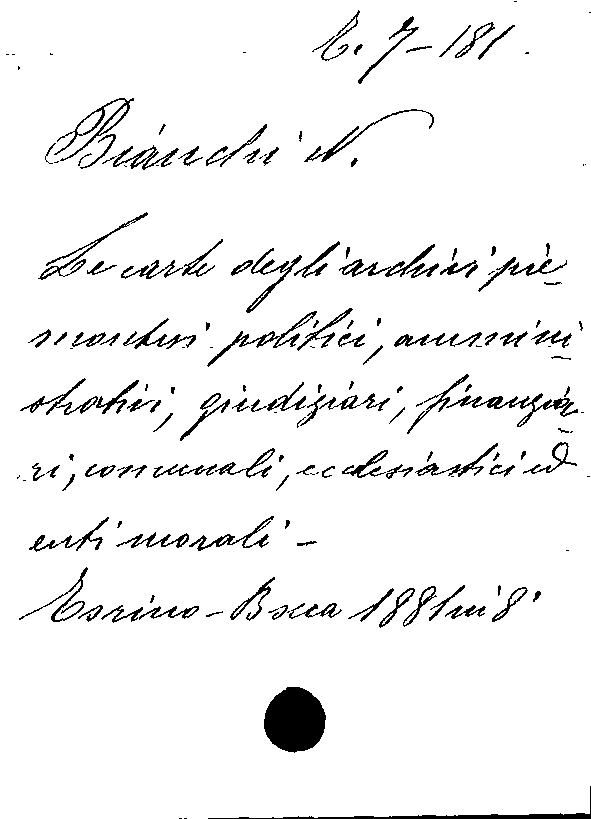 E. 7-181.
Bianchi N.
Le carte degli archivi pie-
montesi politici, ammini-
strativi, giudiziari, finanzia-
ri, comunali, ecclesiastici ed
enti morali -
Torino - Bocca 1881 in 8°